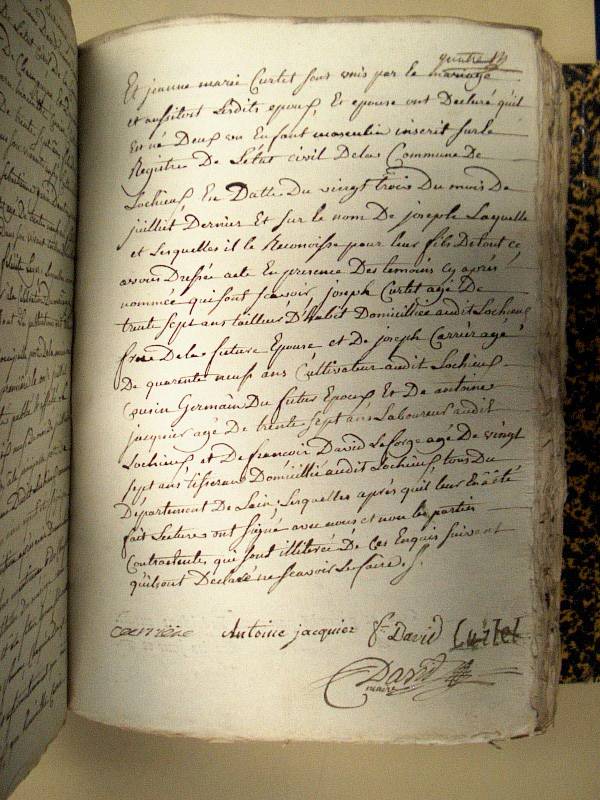 quatre
Et jeanne marie Curtet sont unis par le mariage
et aussitot Lesdits epoux Et epouse ont Declaré quil
Est né Deux un Enfant masculin inscrit sur le
Registre De Letat civil Delas Commune De
Lochieux En Datte Du vingt trois Du mois De
juilliet Dernier Et sur le nom De joseph Laquelle
et Lesquelles il le Reconoisse pour leur fils De tout ce
avons Dressée acte En presence Des temoins cy après
nommée qui sont scavoir joseph Curtet agé De
trente sept ans tailleur D'habit Domicilliée audit Lochieux
frere De la future Epouse et De joseph Carrier agé
De quarente neuf ans Cultivateur audit Lochieux
Cousin Germain Du futur Epoux Et De antoine
jacquier agé De trente sept ans Laboureur audit
Lochieux et De francois David Laforge agé De vingt
sept ans tisseran Domicillié audit Lochieux tous Du
Département De Lain; Lesquelles après quil leur En a été
fait Lecture ont signé avec nous et non les parties
Contractante, qui sont illiterée De Ces Enquis suivant
quils ont Declaré ne scavoir Le faire.
carrière Antoine jacquier fs David Curtet
David
maire